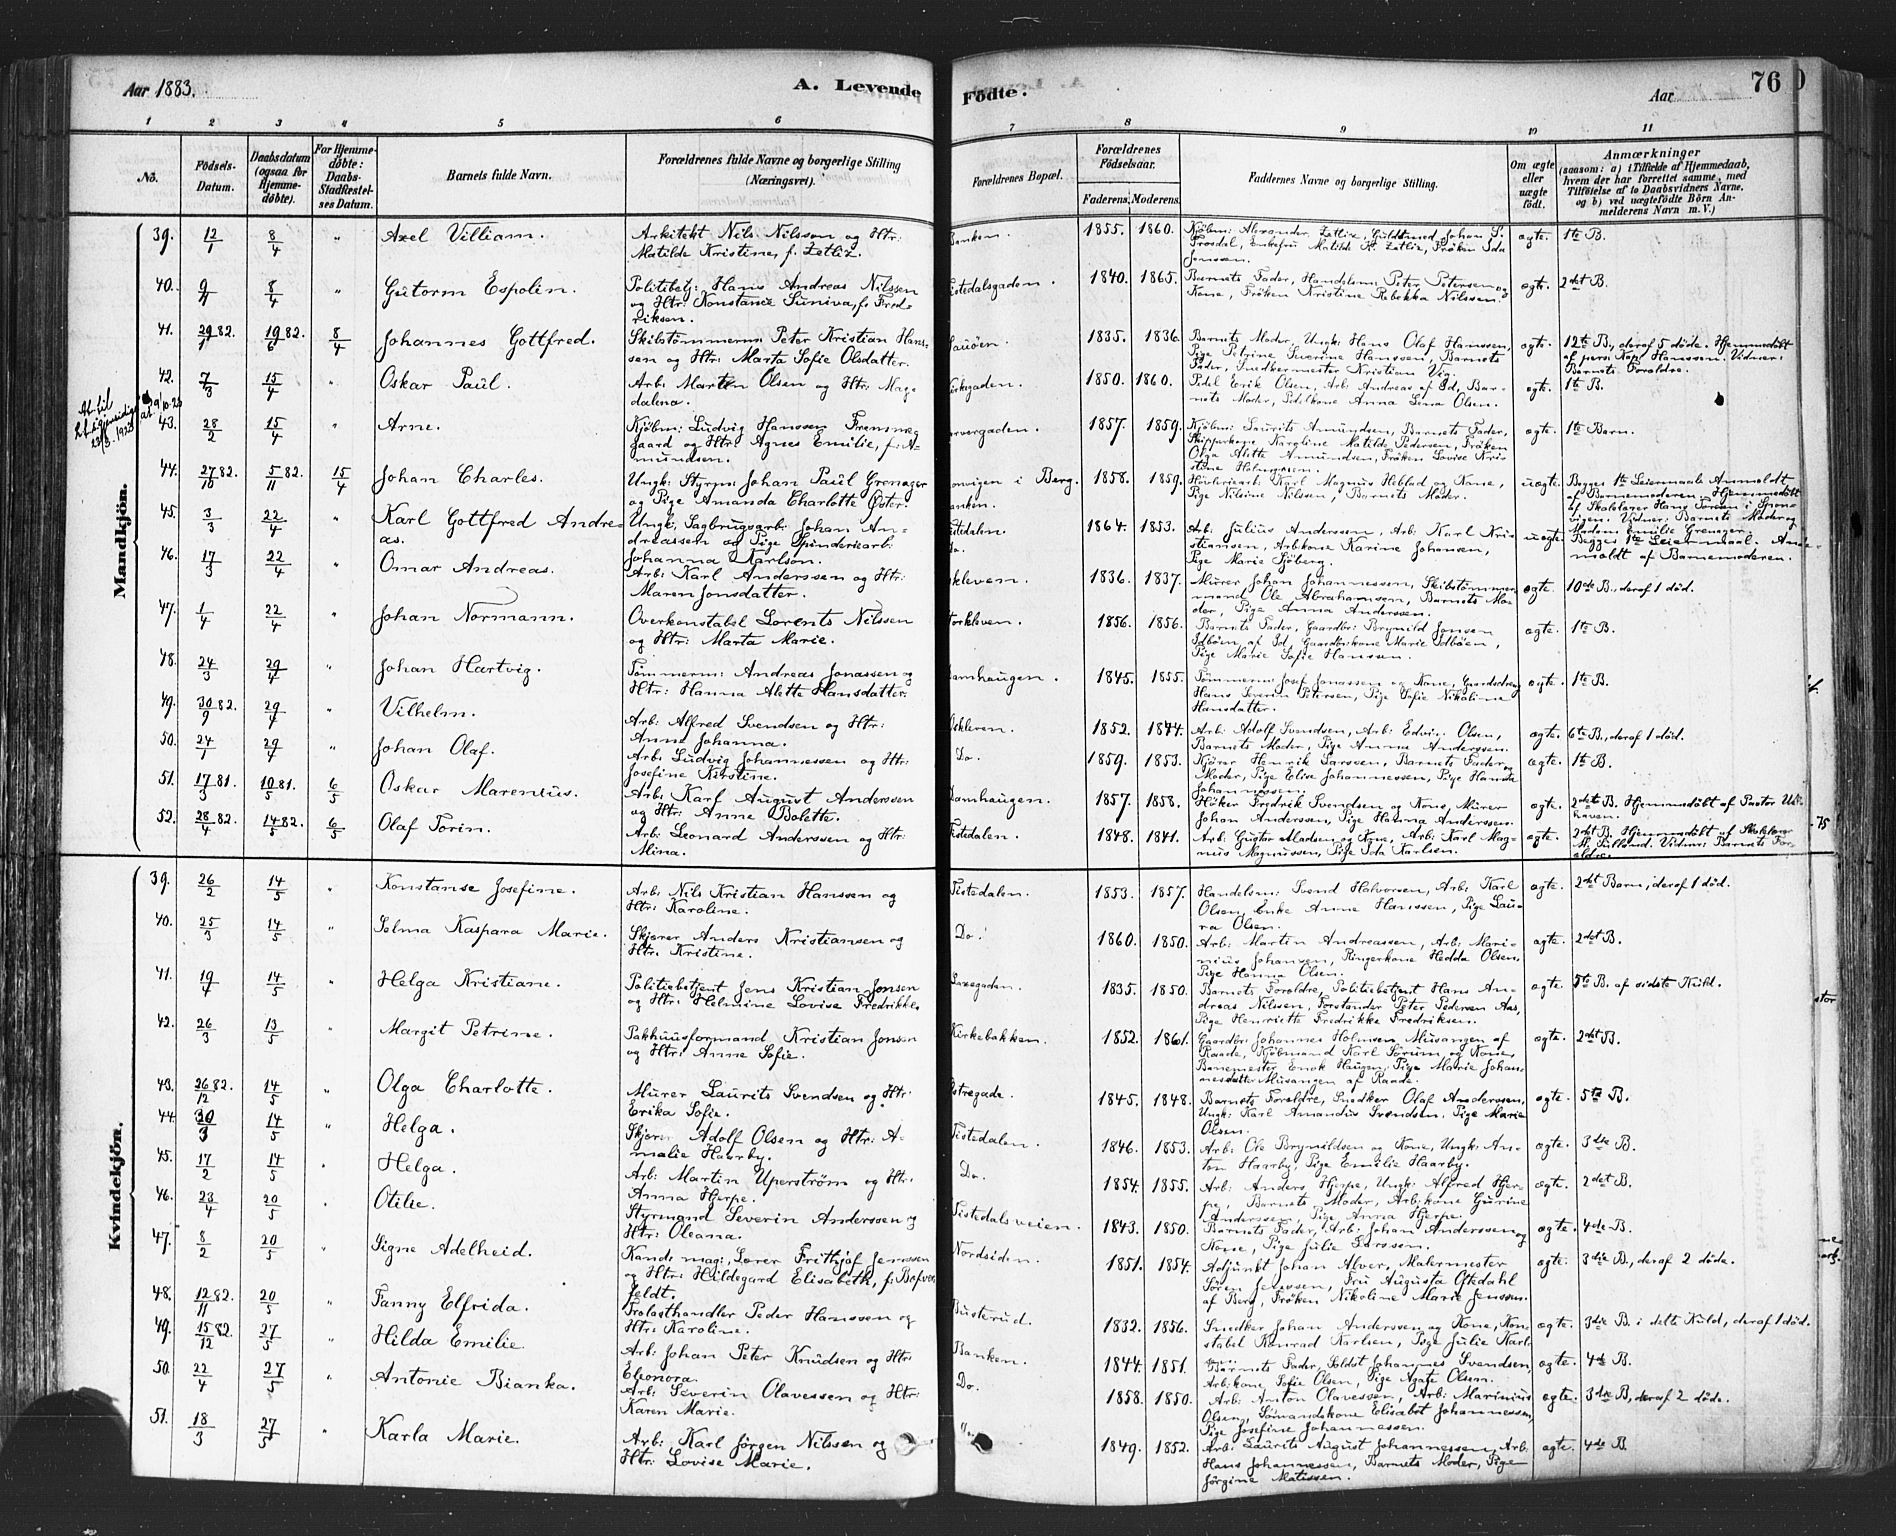 Aar 1883.
A. Levende
Födte.
Aar
76
1 2 3 4 5 6 7 8 9 10 11
No.
Födsels-Datum.
Daabsdatum (ogsaa for Hjemmedöbte).
For Hjemmedöbte: Daabs-Stadfæstelses Datum.
Barnets fulde Navn.
Forældrenes fulde Navne og borgerlige Stilling (Næringsvei).
Forældrenes Bopæl.
Forældrenes Födselsaar.
Faderens. Moderens.
Faddernes Navne og borgerlige Stilling.
Om ægte eller uægte födt.
Anmærkninger
(saasom: a) i Tilfælde af Hjemmedaab, hvem der har forrettet samme, med Tilföielse af to Daabsvidners Navne, og b) ved uægtefödte Börn Anmelderens Navn m. V.)
Mandkjön.
39. 12/1 8/4 " Axel Villiam. Arkitekt Nils Nilsson og Htr: Matilde Kristine, f. Zetliz. Banken. 1855. 1860. Kjøbm: Alexander Zetliz, Guldsmed Johan S. Frosdal, Enkefru Matilde K. Zetliz, Frøken Ida Jonssen. ægte. 1te B.
40. 8/4 " Gutorm Espolin. Politibetj: Hans Andreas Nilssen og Htr: Konstanse Suniva, f. Fredriksen. Tistedalsgaden. 1840. 1865. Barnets Fader, Handelsm: Peter Petersen og Kone, Frøken Kristine Rebekka Nilssen. ægte. 2det B.
41. 29/1 82. 19/6 82. 8/4 Johannes Gottfred. Skibstømmerm: Peter Kristian Hanssen og Htr: Marte Sofie Olsdatter. Sauøen. 1835. 1836. Barnets Moder, Ungk: Hans Olaf Hanssen, Pige Petrine Severine Hanssen, Barnets Fader, Snedkermester Kristian Vig. ægte. 12te B., deraf 5 døde. Hjemmedøbt af pers: Kap: Hanssen. Vidner: Barnets Forældre.
42. 7/3 15/4 " Oskar Paul. Arb: Marten Olsen og Htr: Magdalena. 1850. 1860. Pedel Erik Olsen, Arb: Andreas af Id, Barnets Moder, Pedelkone Anna Lena Olsen. ægte. 1te B.
43. 28/2 15/4 " Arne. Kjøbm: Ludvig Hanssen Fremmegaard og Htr: Agnes Emilie, f. Amundsen. 1857. 1859. Kjøbm: Laurits Amundsen, Barnets Fader, Skipperkone Karoline Matilde Pedersen, Frøken Olga Alette Amundsen, Frøken Lovise Kristine Holmgren. ægte. 1te Barn.
44. 27/10 82. 5/11 82. 15/4 Johan Charles. Ungk: Styrm: Johan Paul Grenager og Pige Amanda Charlotte Øster. i Berg. Banken. 1858. 1859. Karl Magnus Heblad og Kone, Pige Nilsine Nilssen, Barnets Moder. uægte. Begges 1te Leiermaal. Anmeldt af Barnemoderen. Hjemmedøbt af Skolelærer Hans Torsen i Sponvigen. Vidner: Barnets Moder og Madam Emilie Grenager.
45. 3/3 22/4 " Karl Gottfred Andreas. Ungk: Sagbrugsarb: Johan Andreassen og Pige Spinderiarb: Johanna Karlson. Tistedalen. Do. 1864. 1853. Arb: Julius Anderssen, Arb: Karl Kristiansen, Arbkone Karine Johansen, Pige Marie Sjøberg. uægte. Begges 1te Leiermaal. Anmeldt af Barnemoderen.
46. 17/3 22/4 Omar Andreas. Arb: Karl Anderssen og Htr: Maren Jonsdatter. 1836. 1837. Murer Johan Johannessen, Skibstømmermand Ole Abrahamsen, Barnets Moder, Pige Anna Anderssen. ægte. 10de B., deraf 1 død.
47. 1/4 22/4 " Johan Normann. Overkonstabel Lorents Nilssen og Htr: Marta Marie. 1856. 1856. Barnets Fader, Gaardbr: Brynild Jonsen Idbøen, af Id, Gaardbrkone Marie Idbøen, Pige Marie Sofie Hanssen. ægte. 1te B.
48. 24/3 29/4 " Johan Hartvig. Tømmerm: Andreas Jonassen og Htr: Hanna Alette Hansdatter. Damhaugen. 1845. 1855. Tømmerm: Josef Jonassen og Kone, Gaardsdreng Hans Severin Petersen, Pige Sofie Nikoline Hansdatter. ægte. 1te B.
49. 30/9 82. 29/4 " Vilhelm. Arb: Alfred Svendsen og Htr: Anne Johanna. 1852. 1844. Arb: Adolf Svendsen, Arb: Edvin Olsen, Barnets Moder, Pige Anna Anderssen. ægte. 6te B., deraf 1 død.
50. 24/1 29/4 " Johan Olaf. Arb: Ludvig Johannessen og Htr: Josefine Kirstine. Do. 1859. 1853. Kjører Henrik Larssen, Barnets Fader og Moder, Pige Elise Johannessen, Pige Hansta Johannessen. ægte. 1te B.
51. 17/3 81. 10/5 81. 6/5 Oskar Marenius. Arb: Karl August Anderssen og Htr: Anne Bolette. Damhaugen. 1857. 1858. Høker Fredrik Svendsen og Kone, Murer Johan Anderssen, Pige Hanna Anderssen. ægte. 2det B. Hjemmedøbt af Pastor
52. 28/4 82. 14/5 82. 6/5 Olaf Torin. Arb: Leonard Anderssen og Htr: Mina. Tistedalen. 1848. 1841. Arb: Gustav Madsen og Kone, Arb: Karl Magnus Magnussen, Pige Ida Karlsen. ægte. 2det B. Hjemmedøbt af Skolelærer Vidner: Barnets Forældre.
Kvindekjön.
39. 26/2 14/5 " Konstanse Josefine. Arb: Nils Kristian Hanssen og Htr: Karoline. Tistedalen. 1853. 1857. Handelsm: Svend Halvorsen, Arb: Karl Olsen, Enke Anne Hanssen, Pige Laura Olsen. ægte. 2det Barn, deraf 1 død.
40. 25/3 14/5 " Selma Kaspara Marie. Skjærer Anders Kristiansen og Htr: Kristine. Do. 1860. 1850. Arb: Martin Andreassen, Arb: Marinius Johansen, Ringerkone Hedda Olsen, Pige Hanna Olsen. ægte. 2det B.
41. 19/4 14/5 " Helga Kristiane. Politibetjent Jens Kristian Jonsen og Htr: Helmine Lovise Fredrikke. 1835. 1850. Barnets Forældre, Politibetjent Hans Andreas Nilssen, Forstander Peter Pedersen Aas, Pige Henriette Fredrikke Fredriksen. ægte. 5te B. af sidste Kuld.
42. 26/3 13/5 " Margit Petrine. Pakhuusformand Kristian Jonsen og Htr: Anne Sofie. Kirkebakken. 1852. 1861. Gaardbr: Johannes Holmsen Musangen af Raade, Kjøbmand Karl Sørum og Kone, Banemester Enok Haugen, Pige Marie Johannesdatter Musangen af Raade. ægte. 2det B.
43. 26/12 82. 14/5 " Olga Charlotte. Murer Laurits Svendsen og Htr: Erika Sofie. 1845. 1848. Barnets Forældre, Snedker Olaf Anderssen, Ungk: Karl Amandus Svendsen, Pige Marie Olsen. ægte. 5te B.
44. 30/3 14/5 " Helga. Skjærer Adolf Olsen og Htr: Amalie Haarby. Tistedalen. 1846. 1853. Arb: Ole Brynildsen og Kone, Ungk: Anton Haarby, Pige Emilie Haarby. ægte. 3die B.
45. 17/2 14/5 " Helga. Arb: Martin Uperstrøm og Htr: Anna Hjerpe. Do. 1854. 1855. Arb: Anders Hjerpe, Ungk: Alfred Hjerpe, Barnets Moder, Arbkone Gurine Anderssen, Pige Anna Hjerpe. ægte. 2det B.
46. 23/4 20/5 " Otilie. Styrmand Severin Anderssen og Htr: Oleana. Tistedalsveien. 1843. 1850. Barnets Fader, Arb: Johan Anderssen og Kone, Pige Julie Larssen. ægte. 4de B.
47. 8/2 20/5 " Signe Adelheid. Kand: mag: Lærer Frithjof Jenssen og Htr: Hildegard Elisabeth, f. Nordsiden. 1851. 1854. Adjunkt Johan Alver, Malermester Søren Jenssen, Fru Augusta Oftedahl af Berg, Frøken Nikoline Marie Jenssen. ægte. 3die B., deraf 2 døde.
48. 12/11 82. 20/5 " Fanny Elfrida. Trælasthandler Peder Hanssen og Htr: Karoline. Busterud. 1832. 1856. Snedker Johan Anderssen og Kone, Konstabel Konrad Karlsen, Pige Julie ægte. 3die B. i dette Kuld, deraf 1 død.
49. 15/12 82. 27/5 " Hilda Emilie. Arb: Johan Peter Knudsen og Htr: Eleonora. Banken. 1844. 1851. Barnets Fader, Soldat Johannes Svendsen, Arbkone Sofie Olsen, Pige Agate Olsen. ægte. 4de B.
50. 22/4 27/5 " Antonie Bianka. Arb: Severin Olavessen og Htr: Karen Marie. Do. 1858. 1850. Arb: Anton Olavessen, Arb: Marinius Olsen, Sømandskone Elisabet Johannessen, Pige Josefine Johannessen. ægte. 3die B., deraf 2 døde.
51. 18/3 27/5 " Karla Marie. Arb: Karl Jørgen Nilssen og Htr: Lovise Marie. 1849. 1852. Arb: Laurits August Johannessen, Arb: Hans Johannessen, Barnets Moder, Pige Jørgine Matissen. ægte. 4de B.